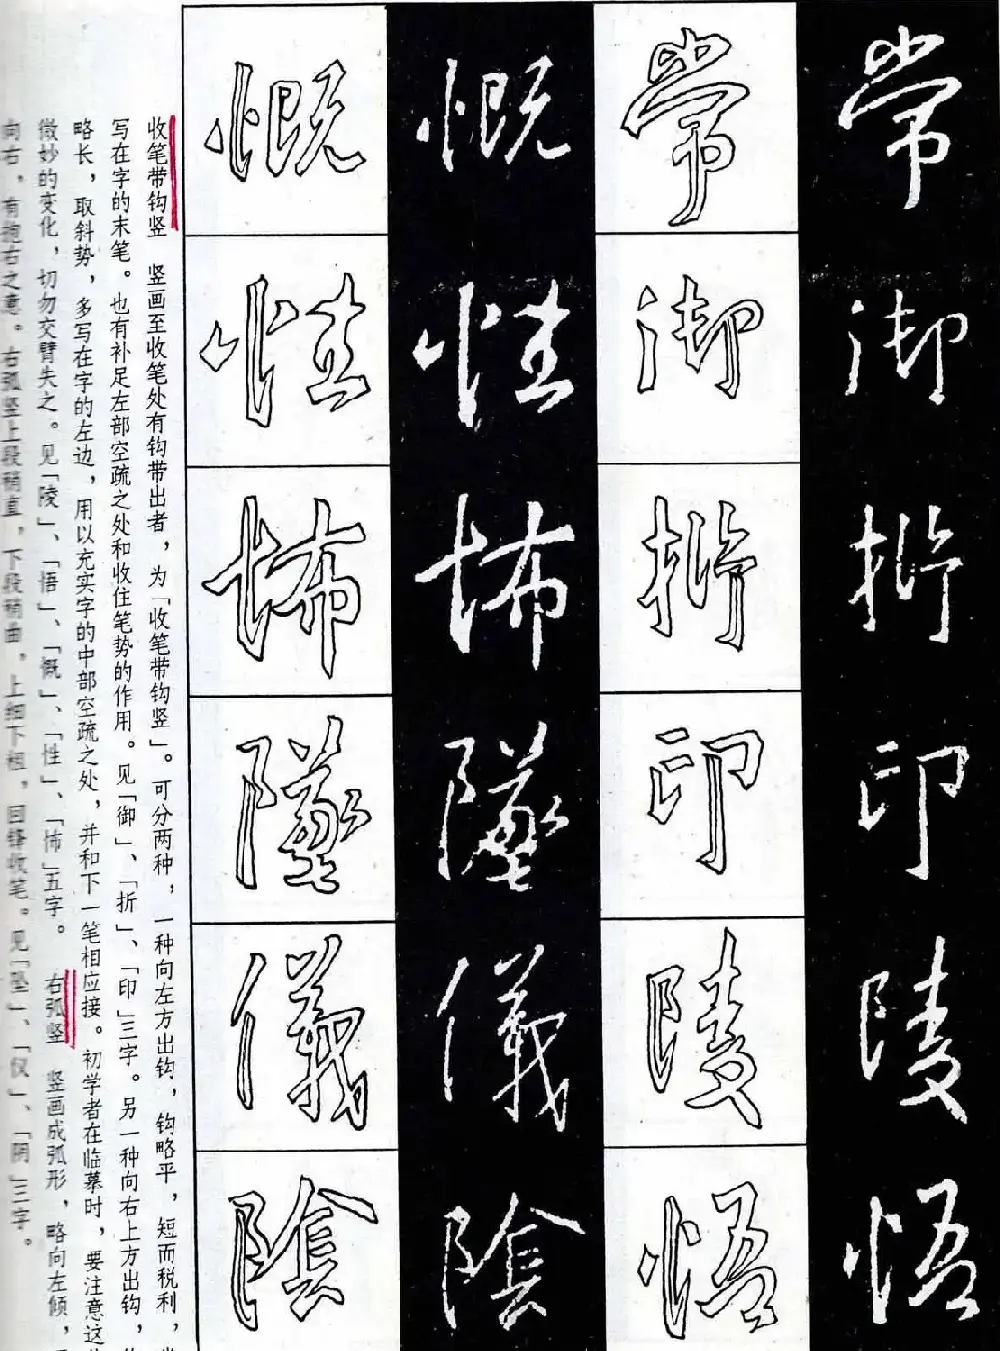 常
御
折
印
陵
悟
常
御
折
印
陵
悟
慨
性
怖
墜
儀
陰
慨
性
怖
墜
儀
陰
收笔带钩竖　竖画至收笔处有钩带出者，为「收笔带钩竖」。可分两种，一种向左方出钩，钩略平，短而税利，
写在字的末笔。也有补足左部空疏之处和收住笔势的作用。见「御」、「折」、「印」三字。另一种向右上方出钩，
略长，取斜势，多写在字的左边，用以充实字的中部空疏之处，并和下一笔相应接。初学者在临摹时，要注意这
微妙的变化，切勿交臂失之。见「陵」、「悟」、「慨」、「性」、「怖」五字。　右弧竖　竖画成弧形，略向左倾，
向右，有抱右之意。右弧竖上段稍直，下段稍曲，上细下粗，回锋收笔。见「坠」、「仪」、「阴」三字。